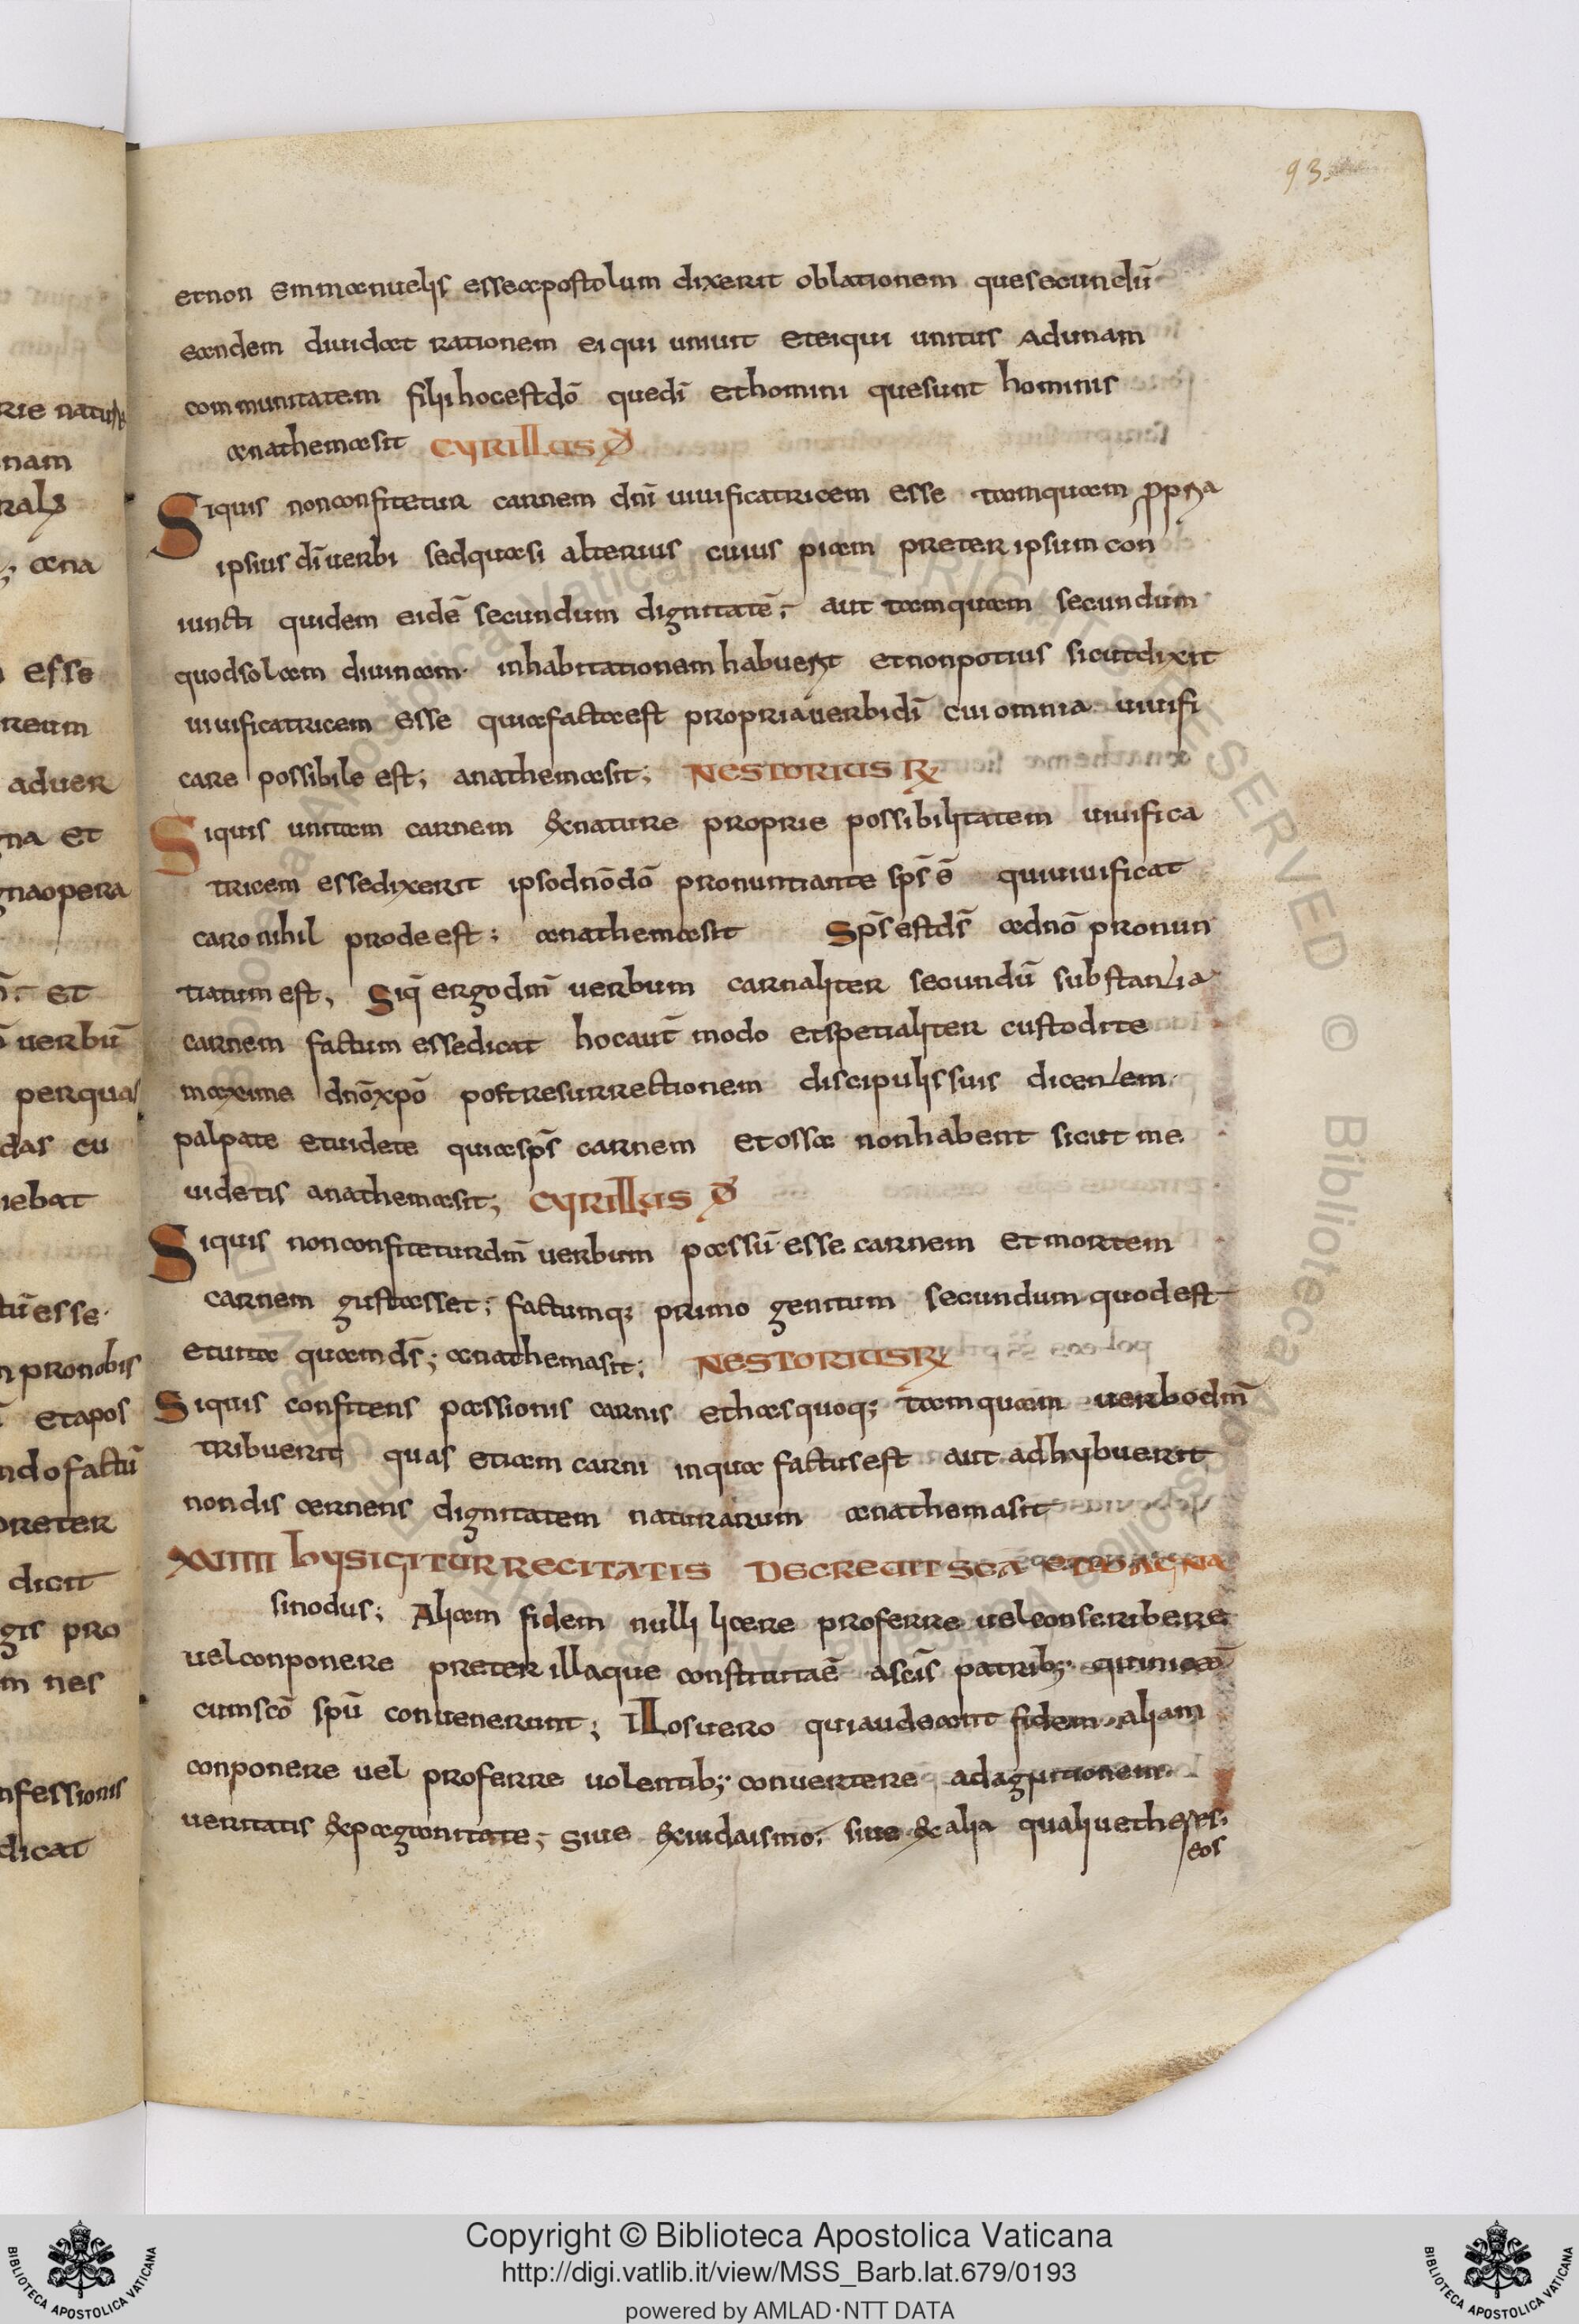 93
etnon emmanuelis esseapostolum dixerit oblationem quesecundū
eandem diuidat rationem ei qui uniuit eteiqui unitus adunam
communitatem filii hocestdō quedī ethomini quesunt hominis
anathemasit CYRILLUS
Siquis nonconfitetur carnem dnī uiuificatricem esse tamquam
ipsius dī uerbi sedquasi alterius cuius piam preter ipsum con
iuncti quidem eidē secundum dignitatē; aut tamquam secundum
quodsolam diuinam inhabitationem habuerit etnonpotius sicutdixit
uiuificatricem esse quiafactaest propriauerbidī cui omnia uiuifi
care possibile est; anathemasit; NESTORIUS R
Siquis unitam carnem &nature proprie possibilitatem uiuifica
tricem essedixerit ipsodnōdō pronuntiante sp̄s ē quiuiuificat
caro nihil prodeest; anathemasit Sp̄s estds̄ adnō pronun
tiatum est, Siq̄ ergo dm̄ uerbum carnaliter secundū substantia
carnem factum essedicat hocaut̄ modo etspetialiter custodite
maxime dnōxpō postresurrectionem discipulissuis dicentem
palpate etuidete quiasp̄s carnem etossa nonhabent sicut me
uidetis anathemasit; CYRILLUS
Siquis nonconfiteturdm̄ uerbum passū esse carnem etmortem
carnem gustasset; factumq; primo genitum secundumquodest
etuita quamds̄; anathemasit; NESTORIUS R
Siquis confitens passionis carnis ethasquoq; tamquam uerbodm̄
tribuerit quas etiam carni inqua factusest aut adhybuerit
nondis cernens dignitatem naturarum anathemasit
XXIIII hYSIGITUR RECITATIS DECREUIT SCA ETMAGNA
sinodus; Aliam fidem nulli licere proferre uelconscribere
uelconponere preter illaque constitutaē ascīs patrib;
cumscō spū conuenerunt; Illosuero quiaudeant fidem aliam
conponere uel proferre uolentib; conuertere adagnitionem
ueritatis &paganitate; siue &iudaismo; siue & alia qualiueth
eos
Copyright © Biblioteca Apostolica Vaticana
http://digi.vatlib.it/view/MSS_Barb.lat.679/0193
powered by AMLAD·NTT DATA